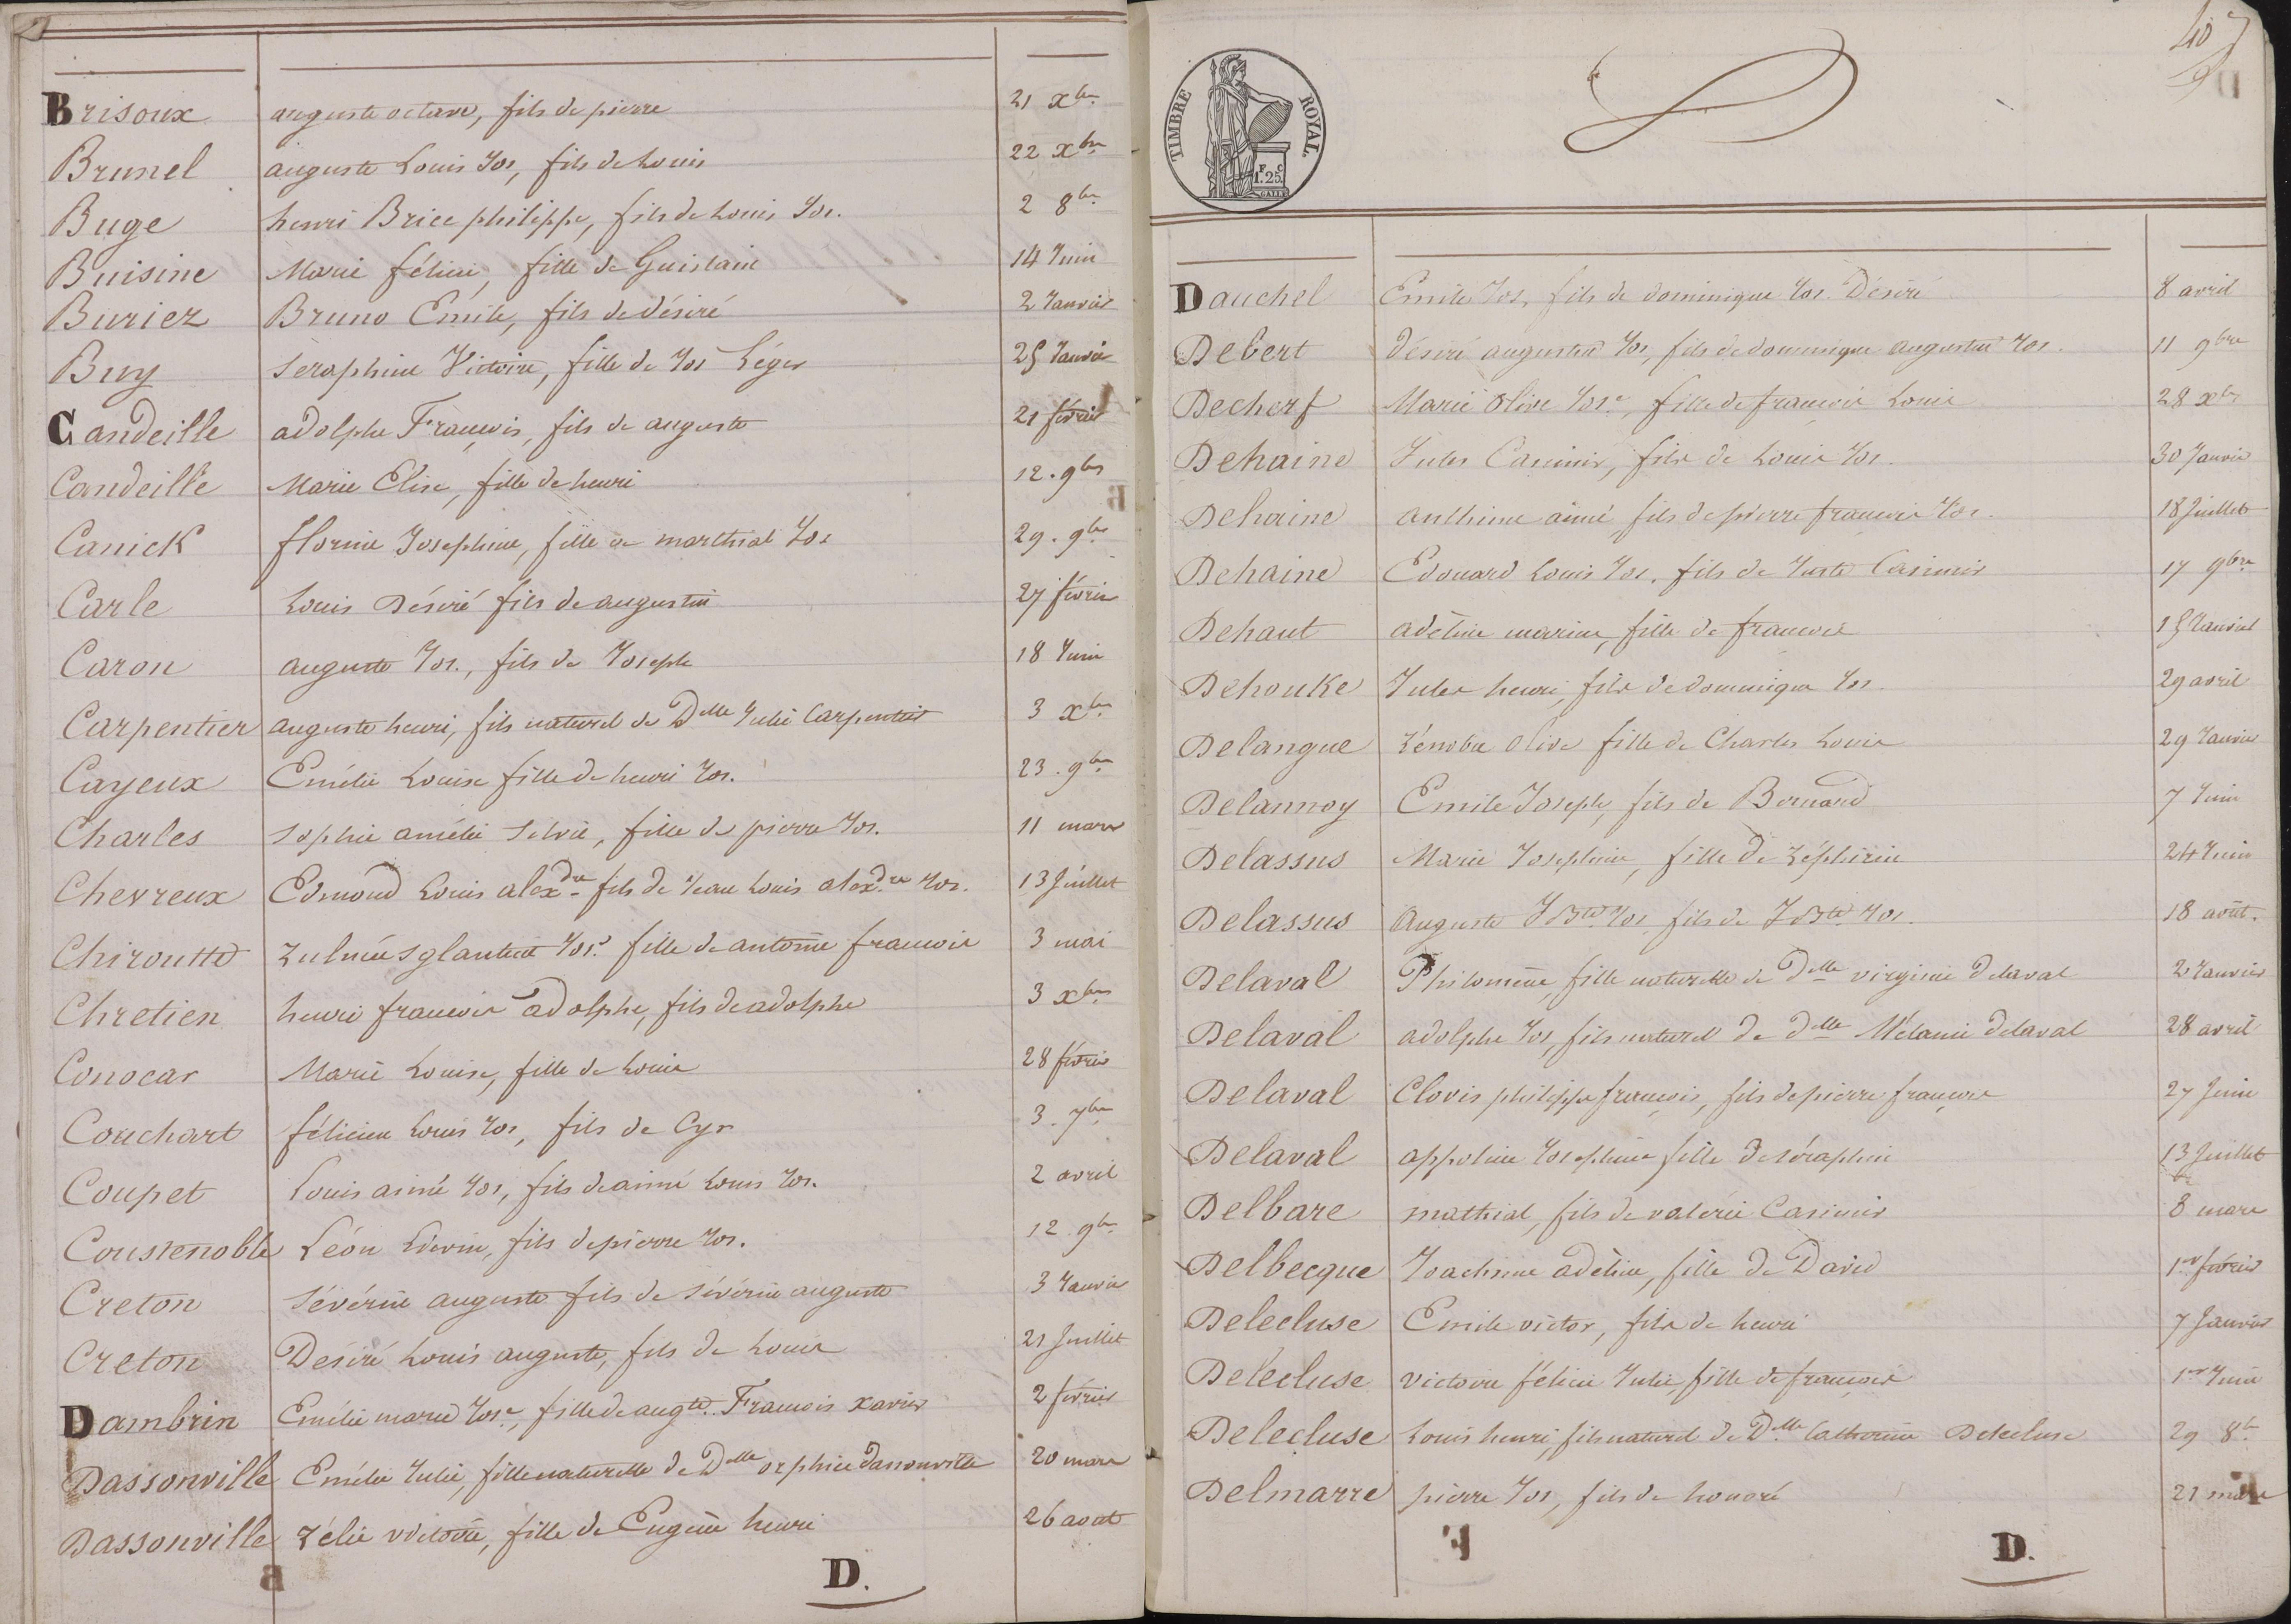 Brisoux auguste octave, fils de pierre 21 Xbre
Brunel auguste Louis Jos, fils de Louis 22 Xbre
Buge henri Brice philippe, fils de Louis Jos. 2 8bre
Buisine Marie félicie, fille de Guislain 14 Juin
Buriez Bruno Emile, fils de désiré 2 Janvier
Buy Séraphine Victoire, fille de Jos Léger 25 Janvier
Candeille adolphe François, fils de auguste 21 février
Candeille Marie Elise, fille de henri 12. 9bre
Canick florine Josephine, fille de marthial Jos 29. 9bre
Carle Louis Désiré fils de augustin 27 février
Caron auguste Jos., fils de Joseph 18 Juin
Carpentier auguste henri, fils naturel de Delle Julie Carpentier 3 Xbre
Cayeux Emélie Louise fille de henri Jos. 23. 9bre
Charles Sophie amélie Silvie, fille de pierre Jos. 11 mars
Chevreux Edmond Louis alexdre fils de Jean Louis alexdre Jos. 13 Juillet
Chiroutte Zulmée Jose fille de antoine francois 3 mai
Chretien henri francois adolphe, fils de adolphe 3 Xbre
Conocar Marie Louise, fille de Louis 28 février
Couchart félicien Louis Jos, fils de Cyr 3. 7bre
Coupet Louis aimé Jos, fils de aimé Louis Jos. 2 avril
Coustenoble Léon Liévin, fils de pierre Jos. 12 9bre
Creton Sévérin auguste fils de Sévérin auguste 3 Janvier
Creton Desiré Louis auguste, fils de Louis 21 Juillet
Dambrin Emélie marie Jose, fille de augte. François xavier 2 février
Dassonville Emélie Julie, fille naturelle de Delle orphise dassonville 20 mars
Dassonville Zélie victoire, fille de Eugène henri 26 aout
D.
407
D
TIMBRE ROYAL
F. C.
1.25
Dauchel Emile Jos, fils de dominique Jos. Désiré 8 avril
Debert désiré augustin Jos, fils de dominique augustin Jos. 11 9bre
Decherf Marie Olive Jose, fille de francois Louis 28 Xbre
Dehaine Jules Casimir, fils de Louis Jos. 30 Janvier
Dehaine anthime aimé fils de pierre francois Jos. 18 Juillet
Dehaine Edouard Louis Jos. fils de Juste Casimir 17 9bre
Dehaut adéline marine, fille de francois 15 Janvier
Dehouke Jules henri, fils de dominique Jos 29 avril
Delangue Zénobie Olive fille de Charles Louis 29 Janvier
Delannoy Emile Joseph, fils de Bernard 7 Juin
Delassus Marie Josephine, fille de Zéphirin 24 Juin
Delassus Auguste J Bte Jos, fils de J Bte Jos. 18 août.
Delaval Philomène, fille naturelle de Delle virginie delaval 2 Janvier
Delaval adolphe Jos, fils naturel de delle Mélanie delaval 28 avril
Delaval Clovis philippe françois, fils de pierre françois 27 Juin
Delaval appoline Josephine fille de séraphin 13 Juillet
Delbare mathial, fils de valérie Casimir 8 mars
Delbecque Joachime adèline, fille de David 1er février
Delecluse Emile victor, fils de henri 7 Janvier
Delecluse victoire félicie Julie, fille de françois 1er Juin
Delecluse Louis henri, fils naturel de Delle Catherine Delecluse 29 8bre
Delmarre pierre Jos, fils de honoré 21 mars
D.